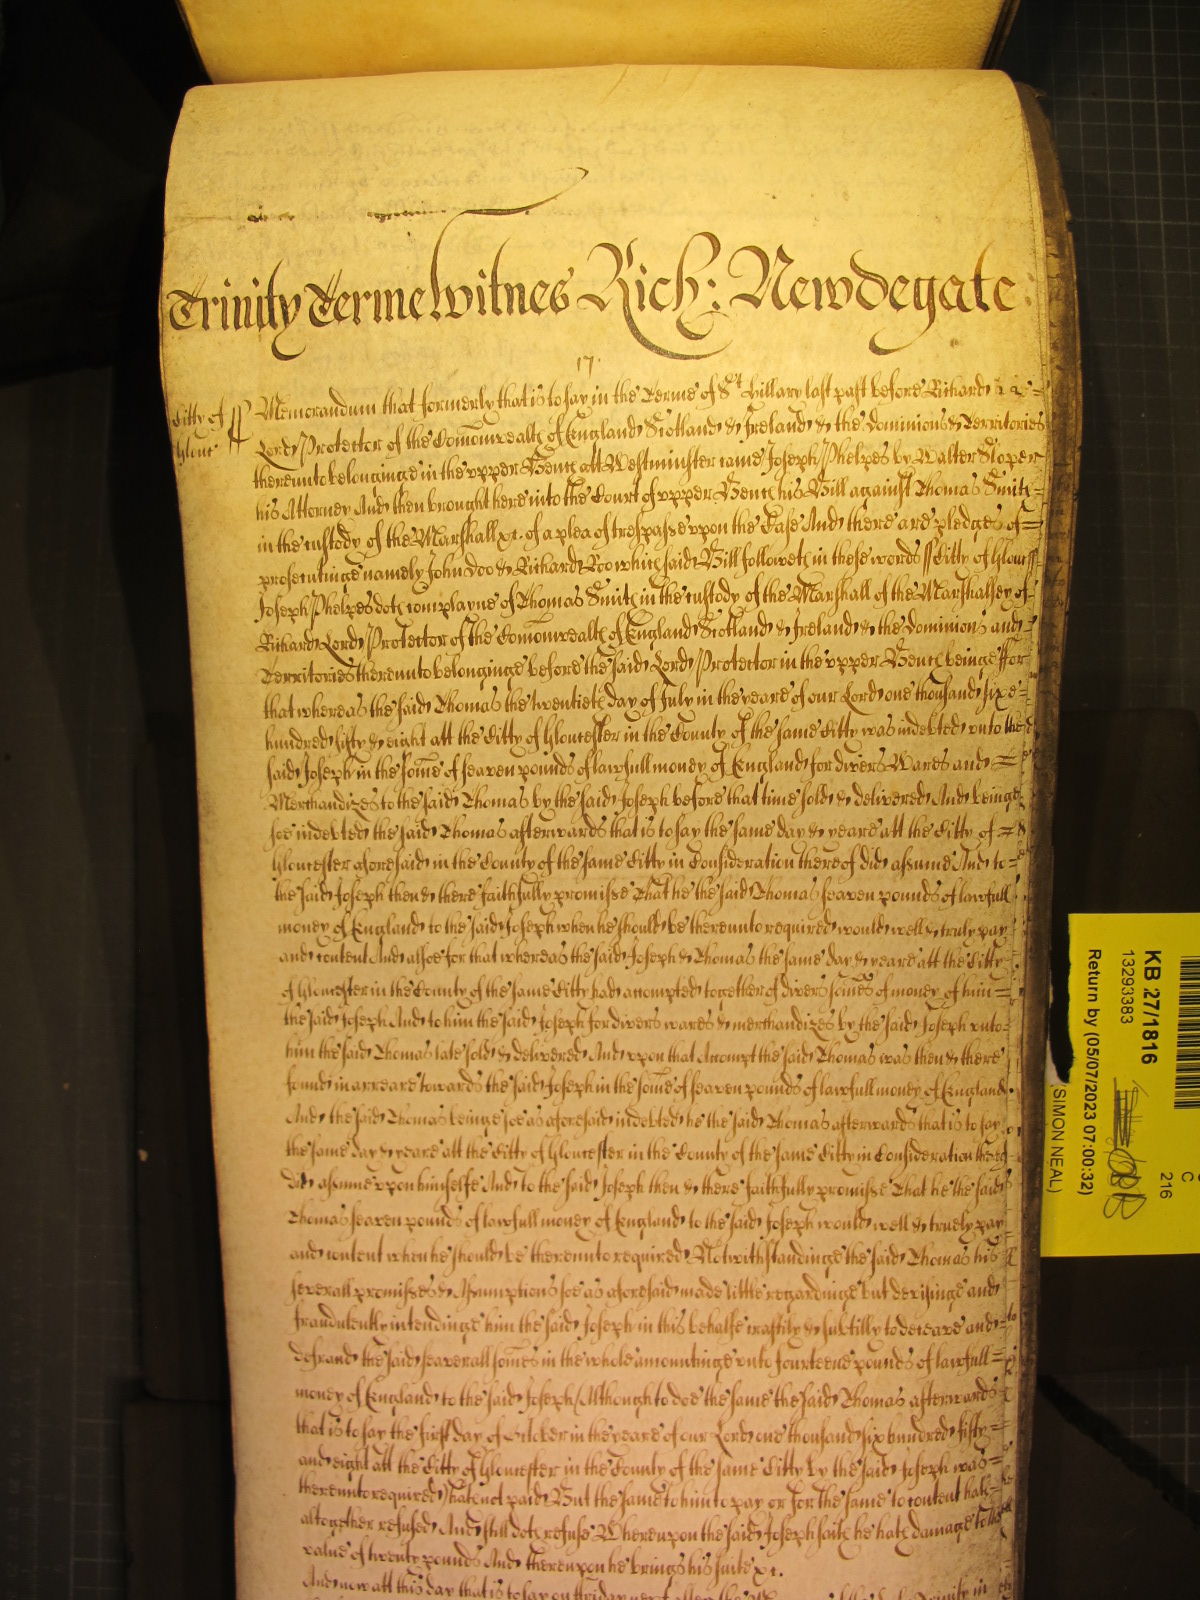 Trinity Terme Witnes Rich: Newdegate
17
Citty of Glouc ss Memorandum that formerly that is to say in the Terme of St Hillary last past before Richard
Lord Protector of the Comonwealth of England Scotland & Ireland & the Dominions & Territories
thereunto belonginge in the upper Bench att Westminster came Joseph Phelpes by Walter Sloper
his Attorney And then brought here into the Court of upper Bench his Bill against Thomas Smith
in the custody of the Marshall &c. of a plea of trespasse upon the Case And there are pledges of
prosecutinge namely John Doo & Richard Roo which said Bill followeth in these words ss Citty of Glouc ss
Joseph Phelpes doth complayne of Thomas Smith in the custody of the Marshall of the Marshalsey of
Richard Lord Protector of the Comonwealth of England Scotland & Ireland & the Dominions and
Territories thereunto belonginge before the said Lord Protector in the upper Bench beinge ffor
that whereas the said Thomas the twentieth day of July in the yeare of our Lord one thousand sixe
hundred fifty & eight att the Citty of Gloucester in the County of the same Citty was indebted unto the
said Joseph in the some of seaven pounds of lawfull money of England for divers Wares and
Merchandizes to the said Thomas by the said Joseph before that time sold & delivered And beinge
soe indebted the said Thomas afterwards that is to say the same day & yeare att the Citty of
Gloucester aforesaid in the County of the same Citty in Consideration thereof did assume And to
the said Joseph then & there faithfully promisse That he the said Thomas seaven pounds of lawfull
money of England to the said Joseph when he should be thereunto required would well & truly pay
and content And alsoe for that whereas the said Joseph & Thomas the same day & yeare att the Citty
of Gloucester in the County of the same Citty had accompted together of divers somes of money of him
the said Joseph And to him the said Joseph for divers wares & merchandizes by the said Joseph unto
him the said Thomas late sold & delivered And upon that Accompt the said Thomas was then & there
found in arreare towards the said Joseph in the some of seaven pounds of lawfull money of England
And the said Thomas beinge soe as aforesaid indebted he the said Thomas afterwards that is to say
the same day & yeare att the Citty of Gloucester in the County of the same Citty in Consideration thereof
did assume upon himselfe And to the said Joseph then & there faithfully promisse That he the said
Thomas seaven pounds of lawfull money of England to the said Joseph would well & truely pay
and content when he should be thereunto required Notwithstandinge the said Thomas his
severall promisses & Assumptions soe as aforesaid made little regardinge but devisinge and
fraudulently intendinge him the said Joseph in this behalfe craftily & subtilly to deceave and
defraud the said seaverall somes in the whole amountinge unto fourteene pounds of lawfull
money of England to the said Joseph (Although to doe the same the said Thomas afterwards
that is to say the first day of October in the yeare of our Lord one thousand six hundred fifty
and eight att the Citty of Gloucester in the County of the same Citty by the said Joseph was
thereunto required) hath not paid But the same to him to pay or for the same to content hath
altogether refused And still doth refuse Whereupon the said Joseph saith he hath damage to the
value of twenty pounds And thereupon he brings his suite &c.
And now att this day that is to say on ffriday next after the Trinity in
KB 27/1816
13293383
Return by (05/07/2023 07:00:32)
(SIMON NEAL)
C
216